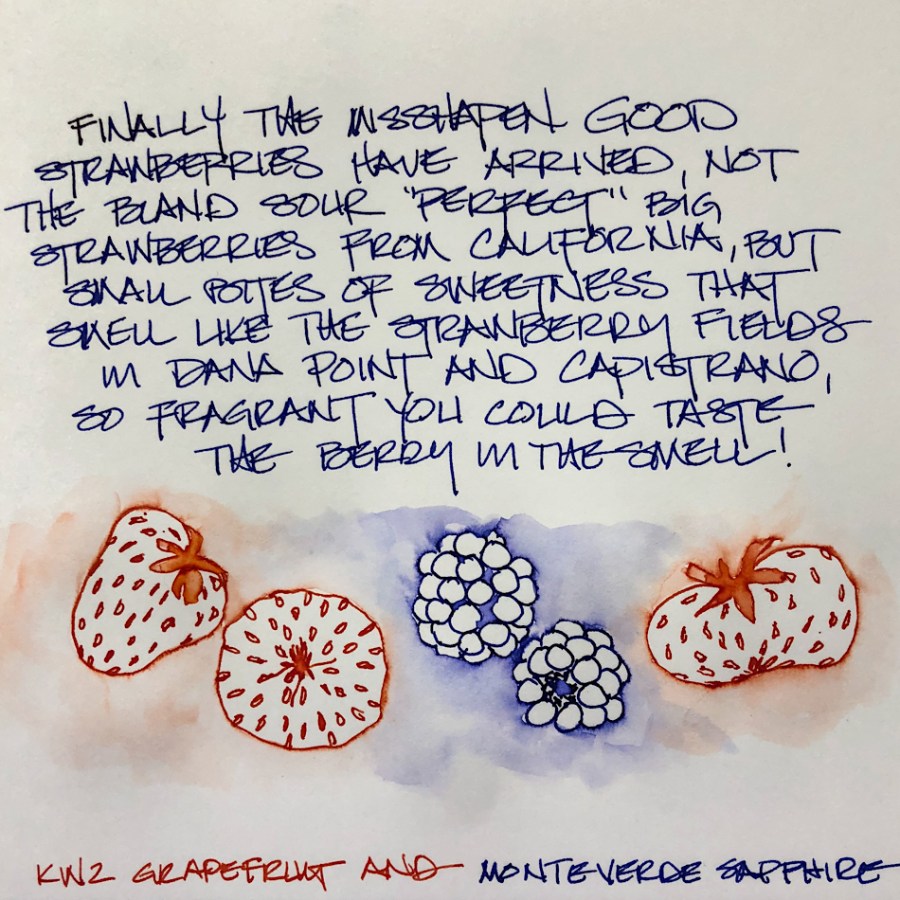 FINALLY THE MISSHAPEN GOOD
STRAWBERRIES HAVE ARRIVED, NOT
THE BLAND SOUR "PERFECT" BIG
STRAWBERRIES FROM CALIFORNIA, BUT
SMALL BITES OF SWEETNESS THAT
SMELL LIKE THE STRAWBERRY FIELDS
IN DANA POINT AND CAPISTRANO,
SO FRAGRANT YOU COULD TASTE
THE BERRY IN THE SMELL!
KWZ GRAPEFRUIT AND MONTEVERDE SAPPHIRE